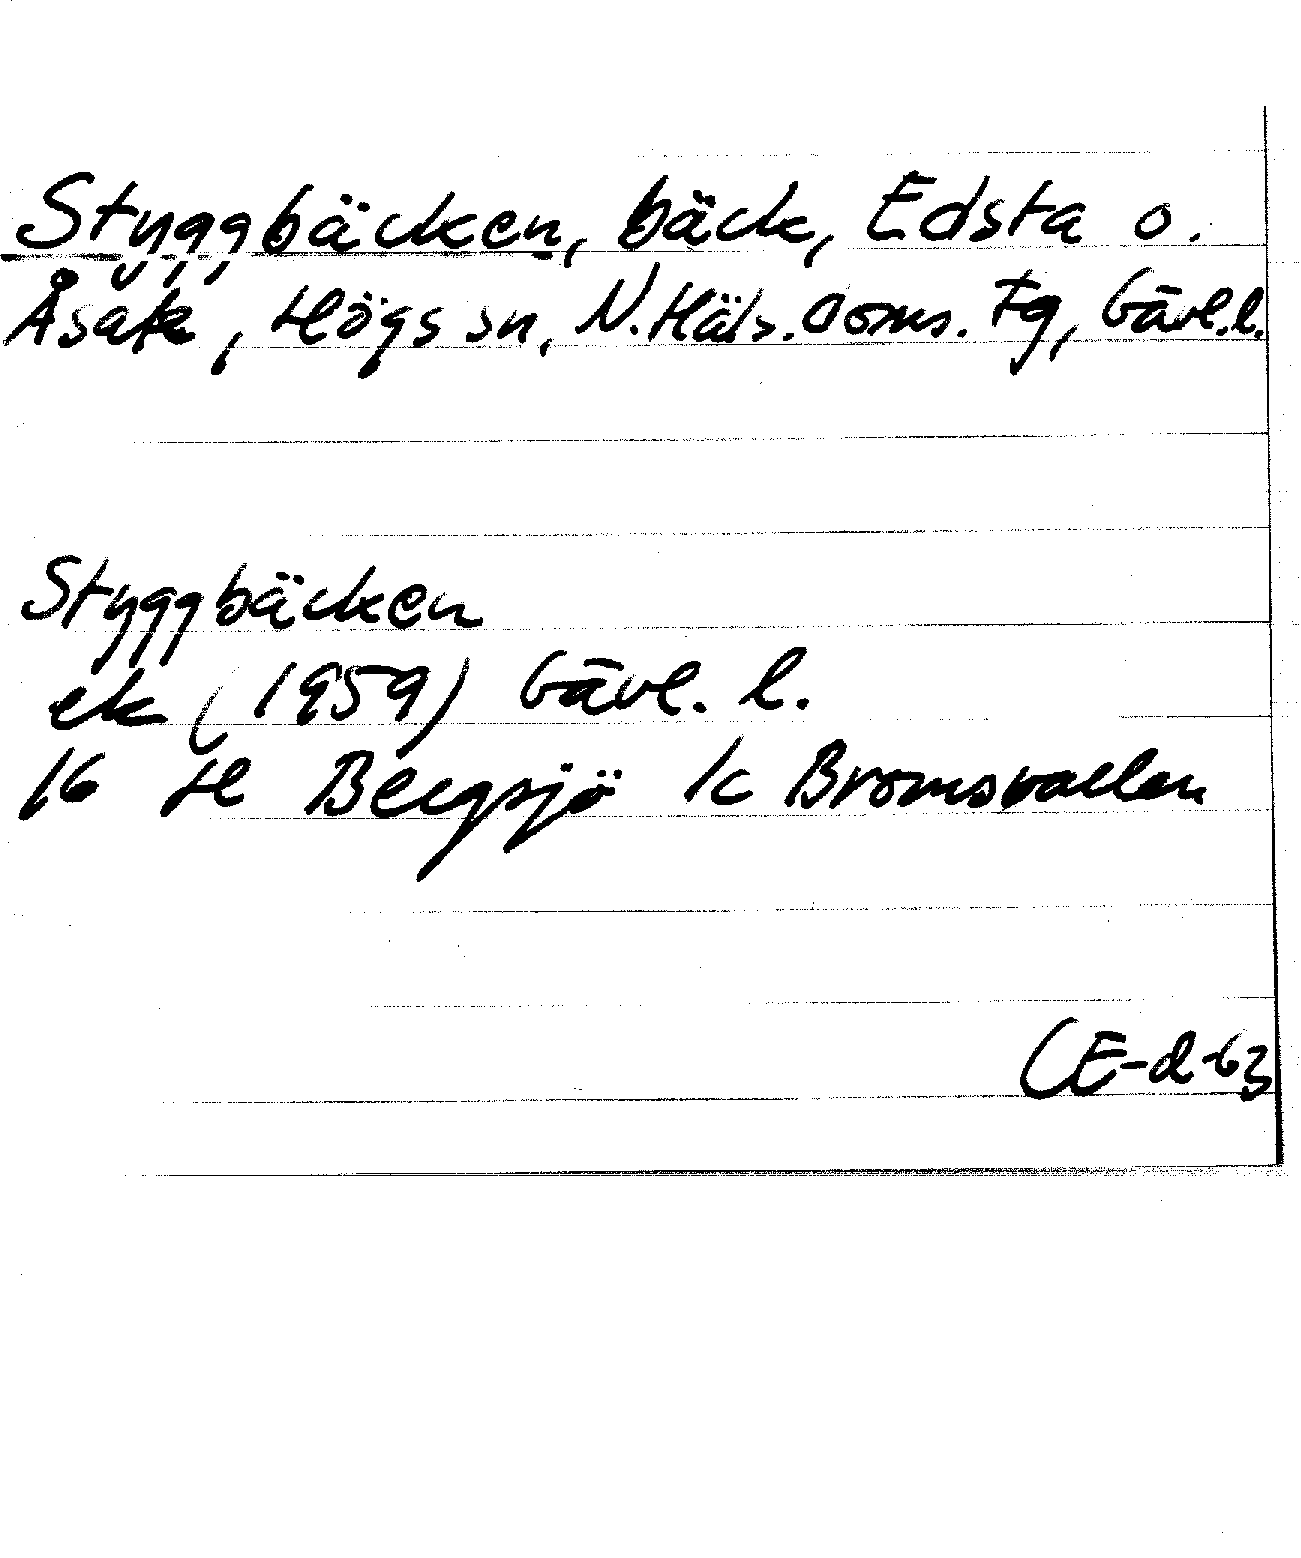 Styggbäcken, bäck, Edsta o.
Åsak, Högs sn, N. Häls. doms. Fg, Gävl. l.
Styggbäcken
ek (1959) Gävl. l.
16 H Bergsjö k Bromsvallen
CE-d-63